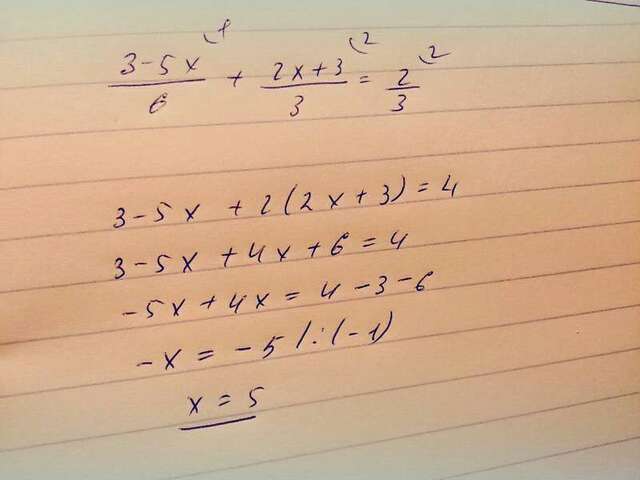 (3-5x)/6 ⁽¹ + (2x+3)/3 ⁽² = 2/3 ⁽²
3-5x + 2(2x+3) = 4
3-5x + 4x + 6 = 4
-5x + 4x = 4 -3 -6
-x = -5 /:(-1)
x = 5